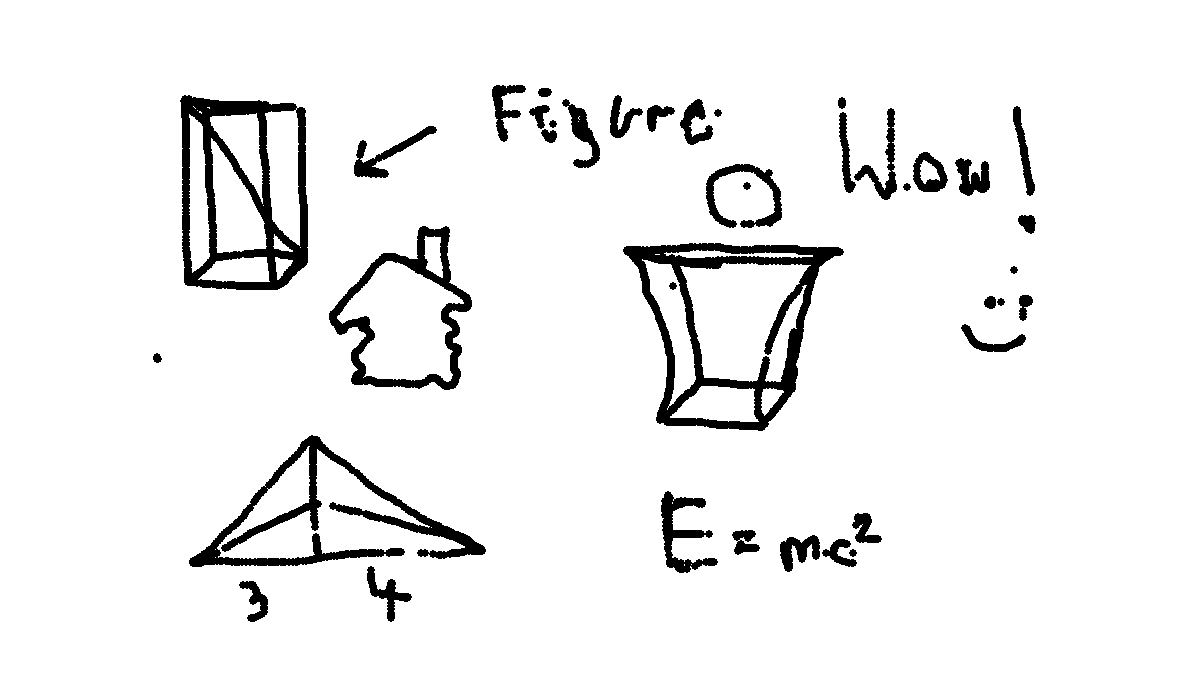 Figure
Wow!
3 4
E = mc²